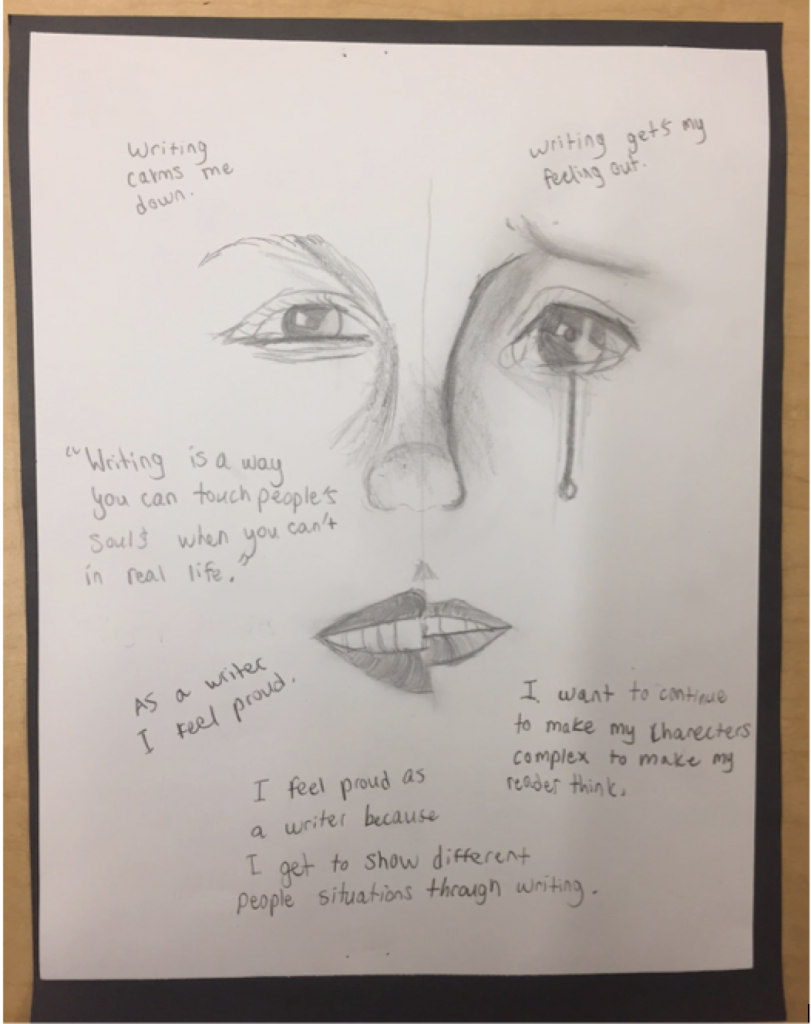 Writing
calms me
down.
Writing gets my
feeling out.
"Writing is a way
you can touch people's
souls when you can't
in real life."
As a writer
I feel proud.
I want to continue
to make my charecters
complex to make my
reader think.
I feel proud as
a writer because
I get to show different
people situations through writing.